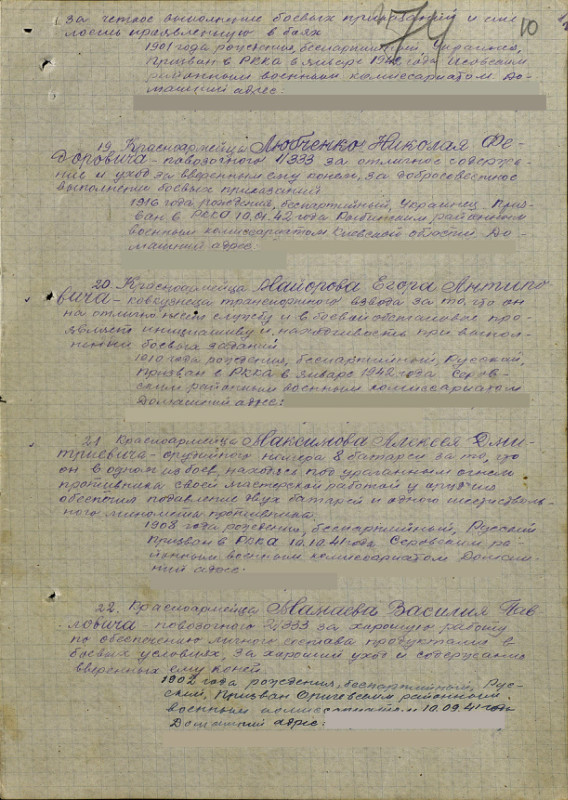 74 10
за четкое выполнение боевых приказаний и сме-
лость проявленную в боях
1901 года рождения, беспартийный, Украинец,
Призван в РККА в январе 1942 года Исовским
районным военным комиссариатом До-
машний адрес:
19. Красноармейца Любченко Николая Фе-
доровича - повозочного 1/333 за отличное содержа-
ние и уход за вверенным ему конем, за добросовестное
выполнение боевых приказаний
1916 года рождения, беспартийный, Украинец. Приз-
ван в РККА 10.01.42 года районным
военным комиссариатом Киевской области. До-
машний адрес:
20. Красноармейца Майорова Егора Антипо
вича - ковкузнеца транспортного взвода за то, что он
на отлично несет службу и в боевой обстановке про-
являет инициативу и находчивость при выпол-
нении боевых заданий
1910 года рождения, беспартийный, Русский,
Призван в РККА в январе 1942 года Серов-
ским районным военным комиссариатом
Домашний адрес:
21. Красноармейца Максимова Алексея Дми-
триевича - орудийного номера 8 батареи за то, что
он в одном из боев, находясь под ураганным огнем
противника своей мастерской работой у орудия
обеспечил подавление двух батарей и одного шестистволь-
ного миномета противника.
1908 года рождения, беспартийный, Русский
Призван в РККА 10.10.41 года Серовским ра-
йонным военным комиссариатом Домаш-
ний адрес.
22. Красноармейца Василия Пав
ловича - повозочного 2/333 за хорошую работу
по обеспечению личного состава продуктами в
боевых условиях, за хороший уход и содержание
вверенных ему коней.
1902 года рождения, беспартийный, Рус-
ский, Призван районным
военным комиссариатом 10.09.41 года
Домашний адрес: